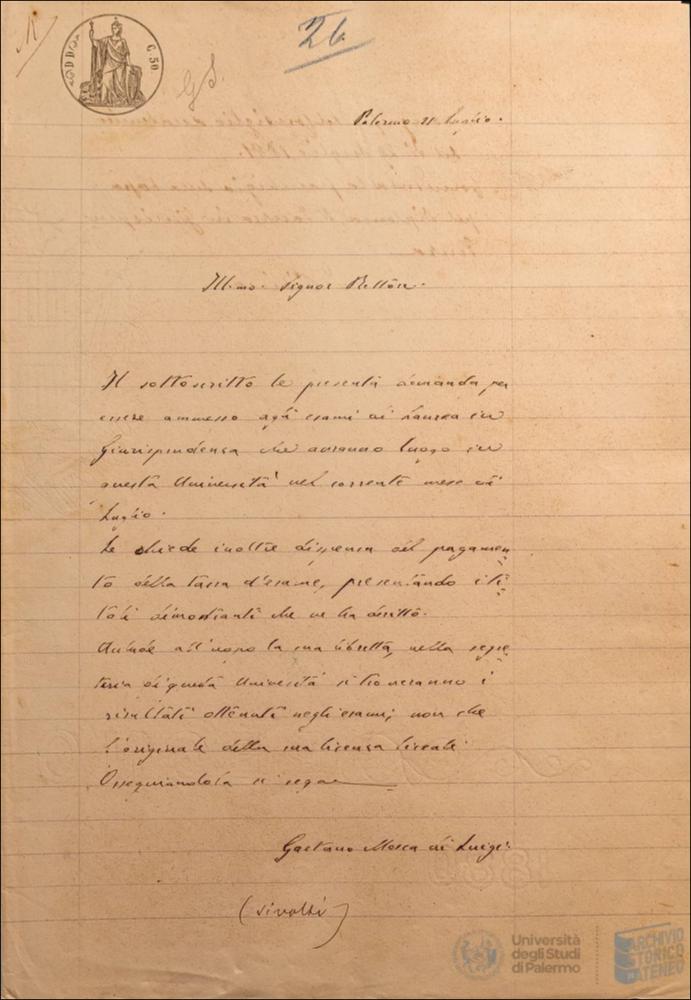 26
C. 50
Palermo 21 Luglio.
Ill.mo Signor Rettore.
Il sottoscritto le presenta domanda per
essere ammesso agli esami di Laurea in
Giurisprudenza che avranno luogo in
questa Università nel corrente mese di
Luglio.
Le chiede inoltre dispensa del pagamen
to della tassa d'esame, presentando i ti
toli dimostranti che ne ha diritto.
all'uopo la sua libretta, nella segre
teria di questa Università si troveranno i
risultati ottenuti negli esami, non che
l'originale della sua licenza liceale
Ossequiandola si segna
Gaetano Mosca di Luigi
(rivolti)
Università
degli Studi
di Palermo
ARCHIVIO
STORICO
DI ATENEO